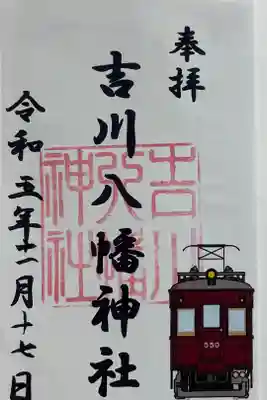 奉拝
吉川八幡神社
吉川八幡神社
令和五年十一月十七日
550